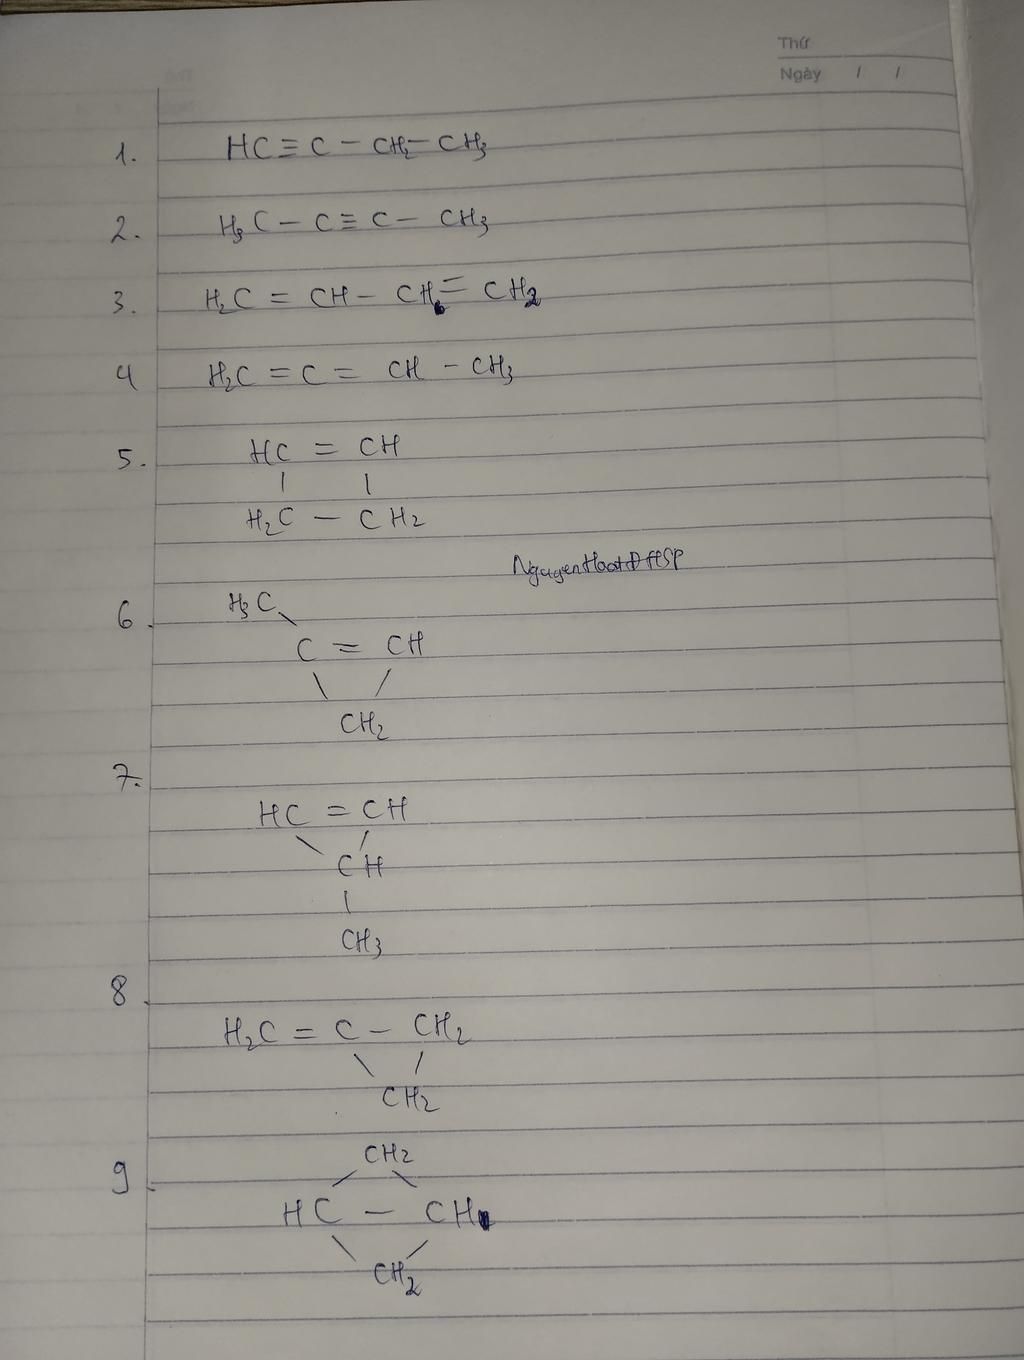 Thứ
Ngày / /
1. HC ≡ C - CH2 - CH3
2. H3C - C ≡ C - CH3
3. H2C = CH - CH = CH2
4 H2C = C = CH - CH3
5. HC = CH
| |
H2C - CH2
NguyenHoatĐHSP
6. H3C
\
C = CH
\ /
CH2
7.
HC = CH
\ /
CH
|
CH3
8.
H2C = C - CH2
\ /
CH2
CH2
9. / \
HC - CH
\ /
CH2